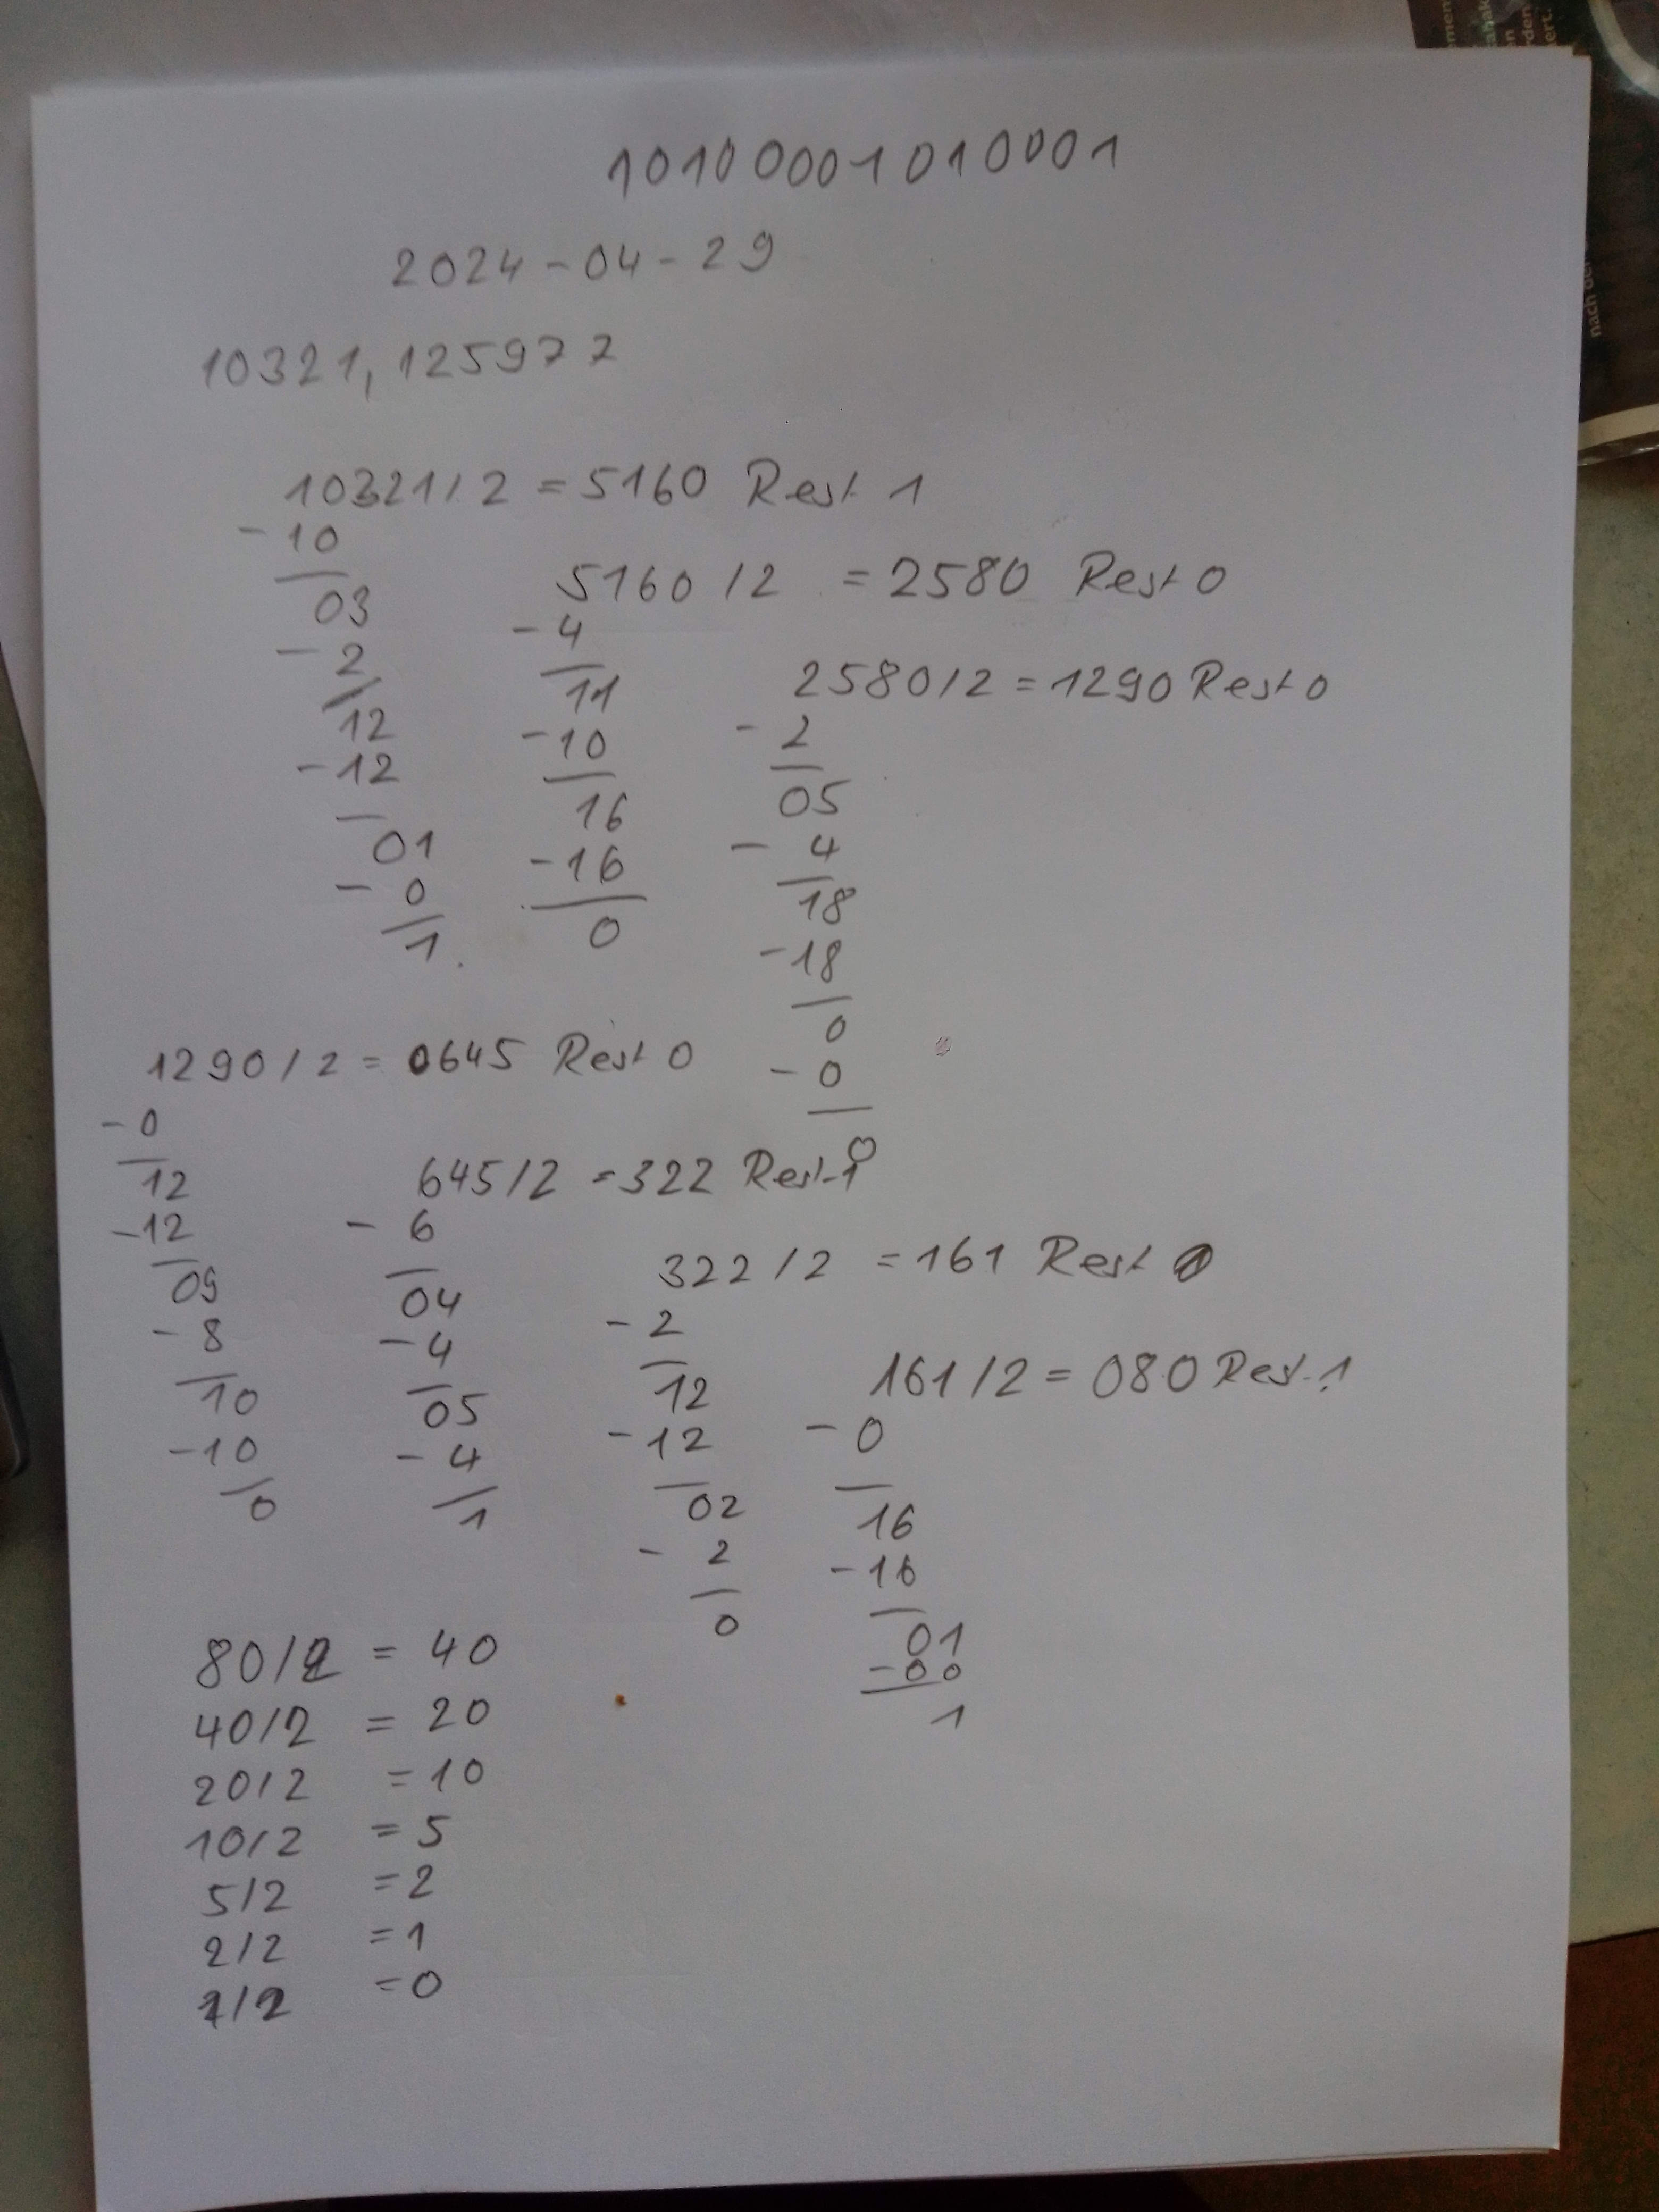 10100001010001
2024-04-29
10321,125977
10321/2 = 5160 Rest 1
- 10
03
- 2
12
- 12
01
- 0
1
5160 /2 = 2580 Rest 0
- 4
11
- 10
16
- 16
0
2580/2 = 1290 Rest 0
- 2
05
- 4
18
- 18
0
- 0
0
1290/2 = 0645 Rest 0
- 0
12
- 12
09
- 8
10
- 10
0
645/2 = 322 Rest 1
- 6
04
- 4
05
- 4
1
322/2 = 161 Rest 0
- 2
12
- 12
02
- 2
0
161/2 = 080 Rest 1
- 0
16
- 16
01
- 00
1
80/2 = 40
40/2 = 20
20/2 = 10
10/2 = 5
5/2 = 2
2/2 = 1
1/2 = 0
nach der